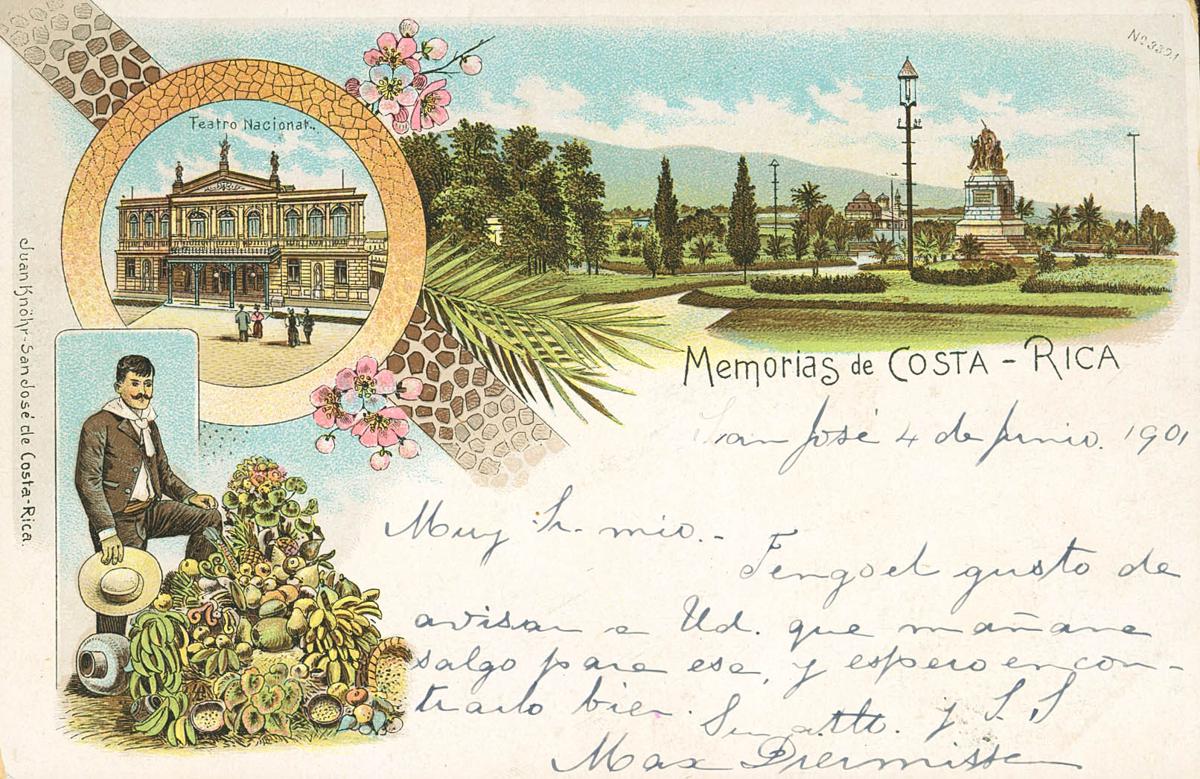 Nº 3321
Teatro Nacional.
Juan Knöhr-San José de Costa-Rica.
Memorias de COSTA-RICA
San José 4 de Junio. 1901
Muy Sr. mio.-
Tengo el gusto de
avisar a Ud. que mañana
salgo para esa, y espero encon-
trarlo bien.
Su atto. y S. S
Max